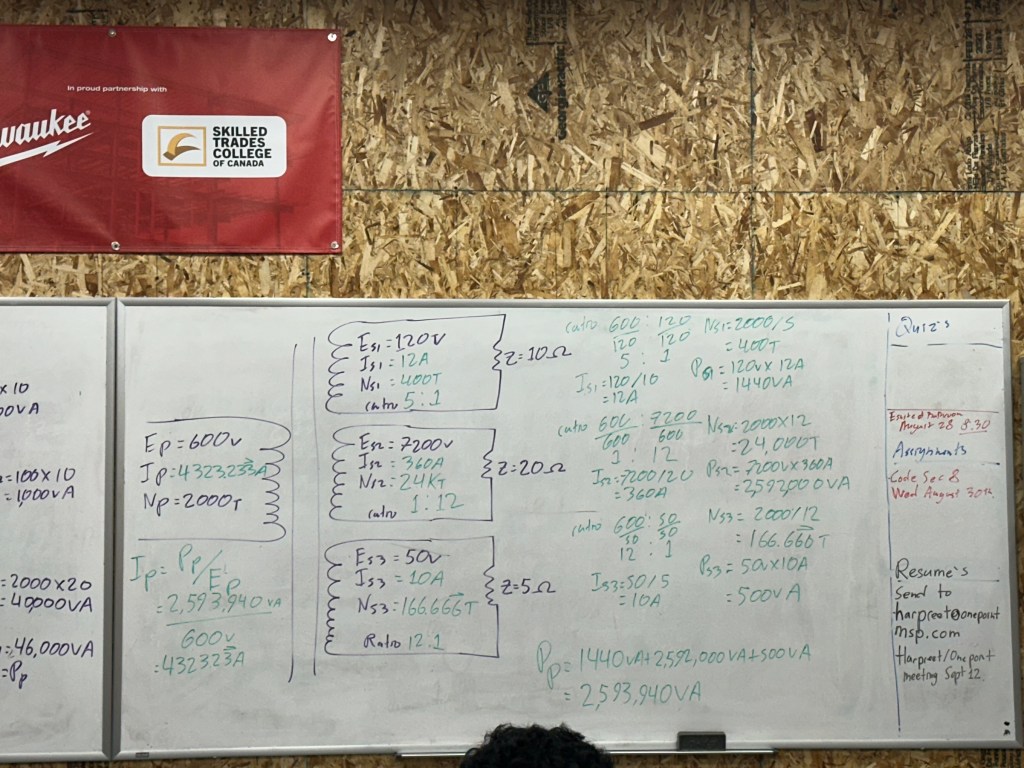 In proud partnership with
waukee
SKILLED
TRADES
COLLEGE
OF CANADA
x10
00VA
=100x10
=1,000VA
=2000x20
=40000VA
=46,000VA
=Pp
Ep=600v
Ip=4323.233A
Np=2000T
Ip=Pp/Ep
=2,593,940VA
600v
=4323.23A
Es1=120v
Is1=12A
Ns1=400T
ratio 5:1
Z=10Ω
Es2=7200v
Is2=360A
Ns2=24KT
ratio 1:12
Z=20Ω
Es3=50v
Is3=10A
Ns3=166.666T
Ratio 12:1
Z=5Ω
ratio 600:120
120 120
5:1
Is1=120/10
=12A
Ns1=2000/5
=400T
Ps1=120v x 12A
=1440VA
ratio 600:7200
600 600
1:12
Is2=7200/20
=360A
Ns2=2000x12
=24,000T
Ps2=7200vx360A
=2,592,000VA
ratio 600:50
50 50
12:1
Is3=50/5
=10A
Ns3=2000/12
=166.666T
Ps3=50vx10A
=500VA
Pp=1440VA+2,592,000VA+500VA
=2,593,940VA
Quiz's
August 28 8:30
Assignments
Code Sec 8
Wed August 30th
Resume's
Send to
harpreet@onepoint
msp.com
Harpreet/Onepoint
meeting Sept 12